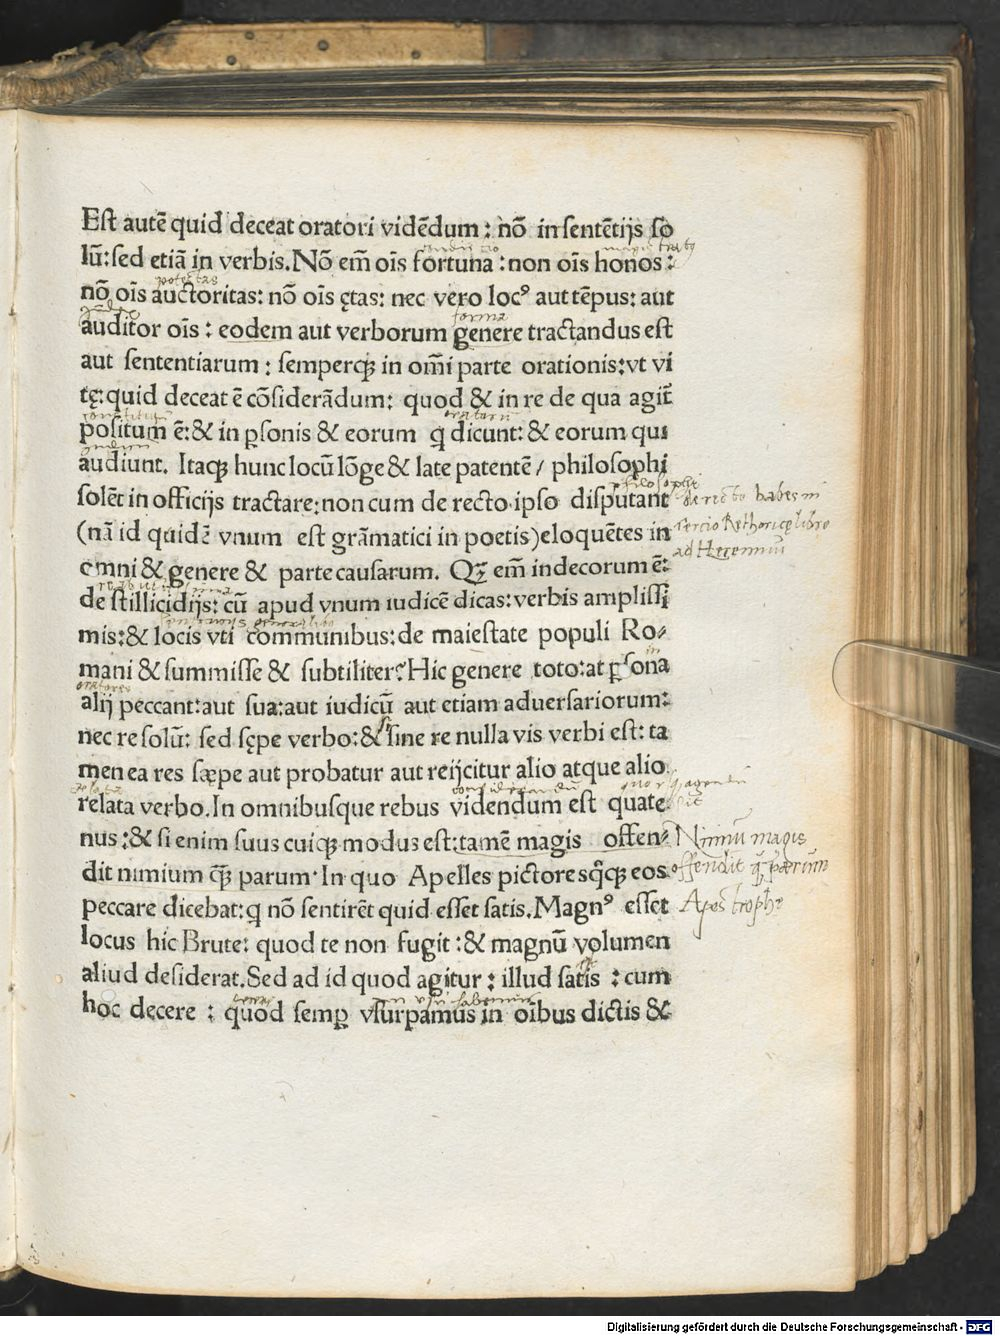 Eſt autē quid deceat oratori vidēdum : nō in ſentētijs ſo
lū: ſed etiā in verbis. Nō em̄ oīs fortuna : non oīs honos :
potestas
nō oīs auctoritas: nō oīs ętas: nec vero locꝰ aut tēpus: aut
forma
auditor oīs : eodem aut verborum genere tractandus eſt
aut ſententiarum : ſemperqꝫ in om̄i parte orationis: vt vi
tę: quid deceat ē cōſiderādum: quod & in re de qua agit̄
poſitum ē: & in ꝑſonis & eorum q̄ dicunt: & eorum qui
audiunt. Itaqꝫ hunc locū lōge & late patentē / philoſophi
ſolēt in officijs tractare: non cum de recto ipſo diſputant
de recto habes in
(nā id quidē vnum eſt grāmatici in poetis) eloquētes in
tercio Rethoricę libro
ad Herennium
omni & genere & parte cauſarum. Qꝫ em̄ indecorum ē:
de ſtillicidijs: cū apud vnum iudicē dicas: verbis ampliſſi
mis: & locis vti communibus: de maieſtate populi Ro⸗
mani & ſummiſſe & ſubtiliter? Hic genere toto: at ꝑſona
oratores
alij peccant: aut ſua: aut iudicū aut etiam aduerſariorum:
nec re ſolū: ſed ſępe verbo: & ſine re nulla vis verbi eſt: ta
men ea res ſæpe aut probatur aut reijcitur alio atque alio
relata verbo. In omnibuſque rebus videndum eſt quate
nus : & ſi enim ſuus cuiqꝫ modus eſt: tamē magis offen⸗
Nimiū magis
dit nimium qꝫ̄ parum. In quo Apelles pictores q̄qꝫ eos
offendit q̄ parum
peccare dicebat: q̄ nō ſentirēt quid eſſet ſatis. Magnꝰ eſſet
Apostrophe
locus hic Brute: quod te non fugit : & magnū volumen
aliud deſiderat. Sed ad id quod agitur : illud ſatis : cum
in vsu habemus
hoc decere : quod ſemꝑ vſurpamus in oībus dictis &
Digitalisierung gefördert durch die Deutsche Forschungsgemeinschaft - DFG